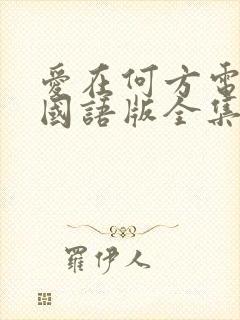 愛在何方電
國語版全集
羅伊人